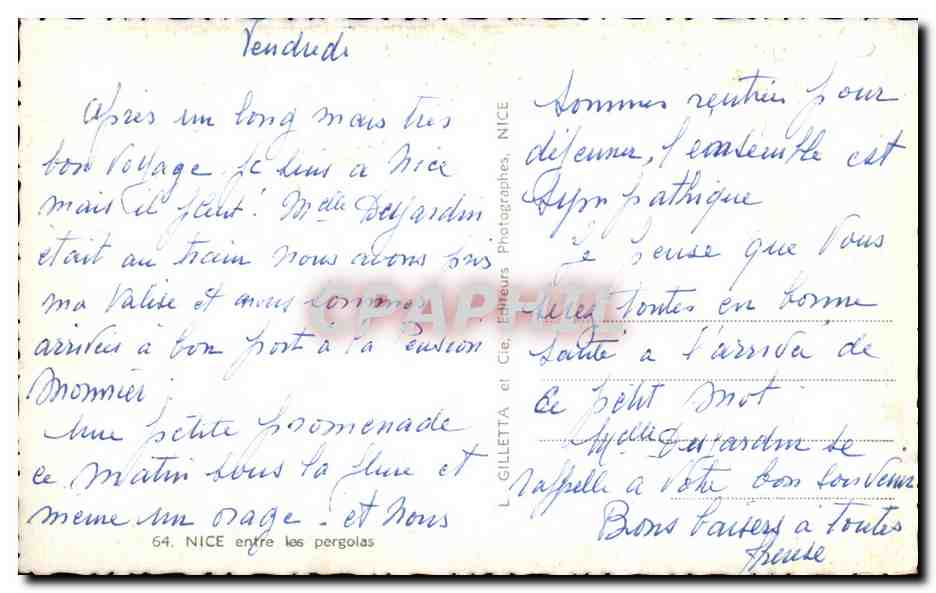 Vendredi
Après un long mais très
bon voyage je suis à Nice
mais il pleut. Mdlle Desjardin
était au train nous avons pris
ma valise et nous sommes
arrivées à bon port à la Pension
Monnier.
Une petite promenade
ce matin sous la pluie et
meme un orage - et nous
64. NICE entre les pergolas
L. GILLETTA et Cie, Editeurs Photographes, NICE
sommes rentrées pour
déjeuner, l'ensemble est
sympathique
Je pense que vous
serez toutes en bonne
santé a l'arrivée de
ce petit mot
Mdlle Dujardin se
rappelle a votre bon souvenir
Bons baisers à toutes
CPAPHIL